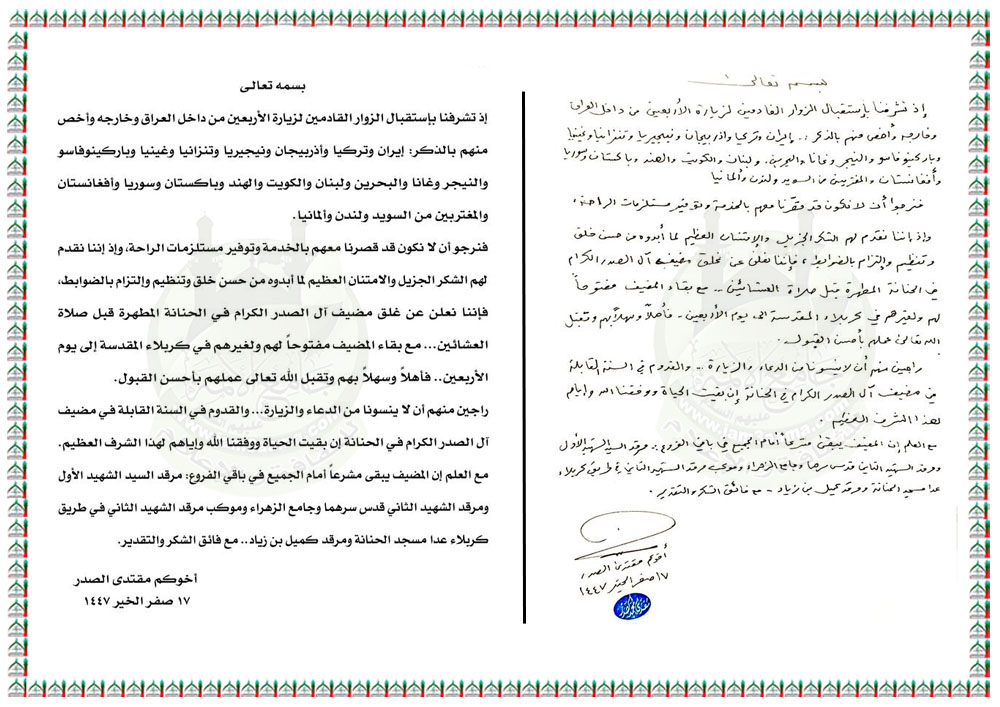 بسمه تعالى
إذ تشرفنا بإستقبال الزوار القادمين لزيارة الأربعين من داخل العراق
وخارجه وأخص منهم بالذكر: إيران وتركيا وأذربيجان ونيجيريا وتنزانيا وغينيا
وباركينوفاسو والنيجر وغانا والبحرين ولبنان والكويت والهند وباكستان وسوريا
وأفغانستان والمغتربين من السويد ولندن وألمانيا
فنرجوا أن لا نكون قد قصرنا معهم بالخدمة وتوفير مستلزمات الراحة،
وإذ إننا نقدم لهم الشكر الجزيل والإمتنان العظيم لما أبدوه من حسن خلق
وتنظيم وإلتزام بالضوابط، فإننا نعلن عن غلق مضيف آل الصدر الكرام
في الحنانة المطهرة قبل صلاة العشائين... مع بقاء المضيف مفتوحاً
لهم ولغيرهم في كربلاء المقدسة الى يوم الأربعين.. فأهلاً وسهلاً بهم وتقبل
الله تعالى عملهم بأحسن القبول.
راجين منهم أن لا ينسونا من الدعاء والزيارة... والقدوم في السنة القابلة
في مضيف آل الصدر الكرام في الحنانة إن بقيت الحياة ووفقنا الله وإياهم
لهذا الشرف العظيم.
مع العلم إن المضيف يبقى مشرعاً أمام الجميع في باقي الفروع: مرقد السيد الشهيد الأول
ومرقد الشهيد الثاني قدس سرهما وجامع الزهراء وموكب مرقد الشهيد الثاني في طريق كربلاء
عدا مسجد الحنانة ومرقد كميل بن زياد.. مع فائق الشكر والتقدير.
أخوكم مقتدى الصدر
١٧ صفر الخير ١٤٤٧
بسمه تعالى
إذ تشرفنا بإستقبال الزوار القادمين لزيارة الأربعين من داخل العراق وخارجه وأخص
منهم بالذكر: إيران وتركيا وأذربيجان ونيجيريا وتنزانيا وغينيا وباركينوفاسو
والنيجر وغانا والبحرين ولبنان والكويت والهند وباكستان وسوريا وأفغانستان
والمغتربين من السويد ولندن وألمانيا.
فنرجو أن لا نكون قد قصرنا معهم بالخدمة وتوفير مستلزمات الراحة، وإذ إننا نقدم
لهم الشكر الجزيل والامتنان العظيم لما أبدوه من حسن خلق وتنظيم وإلتزام بالضوابط،
فإننا نعلن عن غلق مضيف آل الصدر الكرام في الحنانة المطهرة قبل صلاة
العشائين... مع بقاء المضيف مفتوحاً لهم ولغيرهم في كربلاء المقدسة إلى يوم
الأربعين.. فأهلاً وسهلاً بهم وتقبل الله تعالى عملهم بأحسن القبول.
راجين منهم أن لا ينسونا من الدعاء والزيارة... والقدوم في السنة القابلة في مضيف
آل الصدر الكرام في الحنانة إن بقيت الحياة ووفقنا الله وإياهم لهذا الشرف العظيم.
مع العلم إن المضيف يبقى مشرعاً أمام الجميع في باقي الفروع: مرقد السيد الشهيد الأول
ومرقد الشهيد الثاني قدس سرهما وجامع الزهراء وموكب مرقد الشهيد الثاني في طريق
كربلاء عدا مسجد الحنانة ومرقد كميل بن زياد.. مع فائق الشكر والتقدير.
أخوكم مقتدى الصدر
١٧ صفر الخير ١٤٤٧